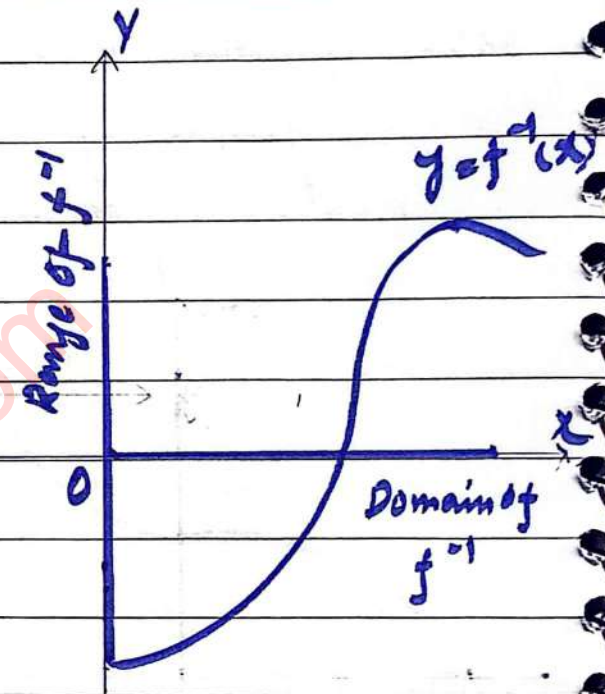 Y
y = f⁻¹(x)
Range of f⁻¹
x
O
Domain of
f⁻¹
om